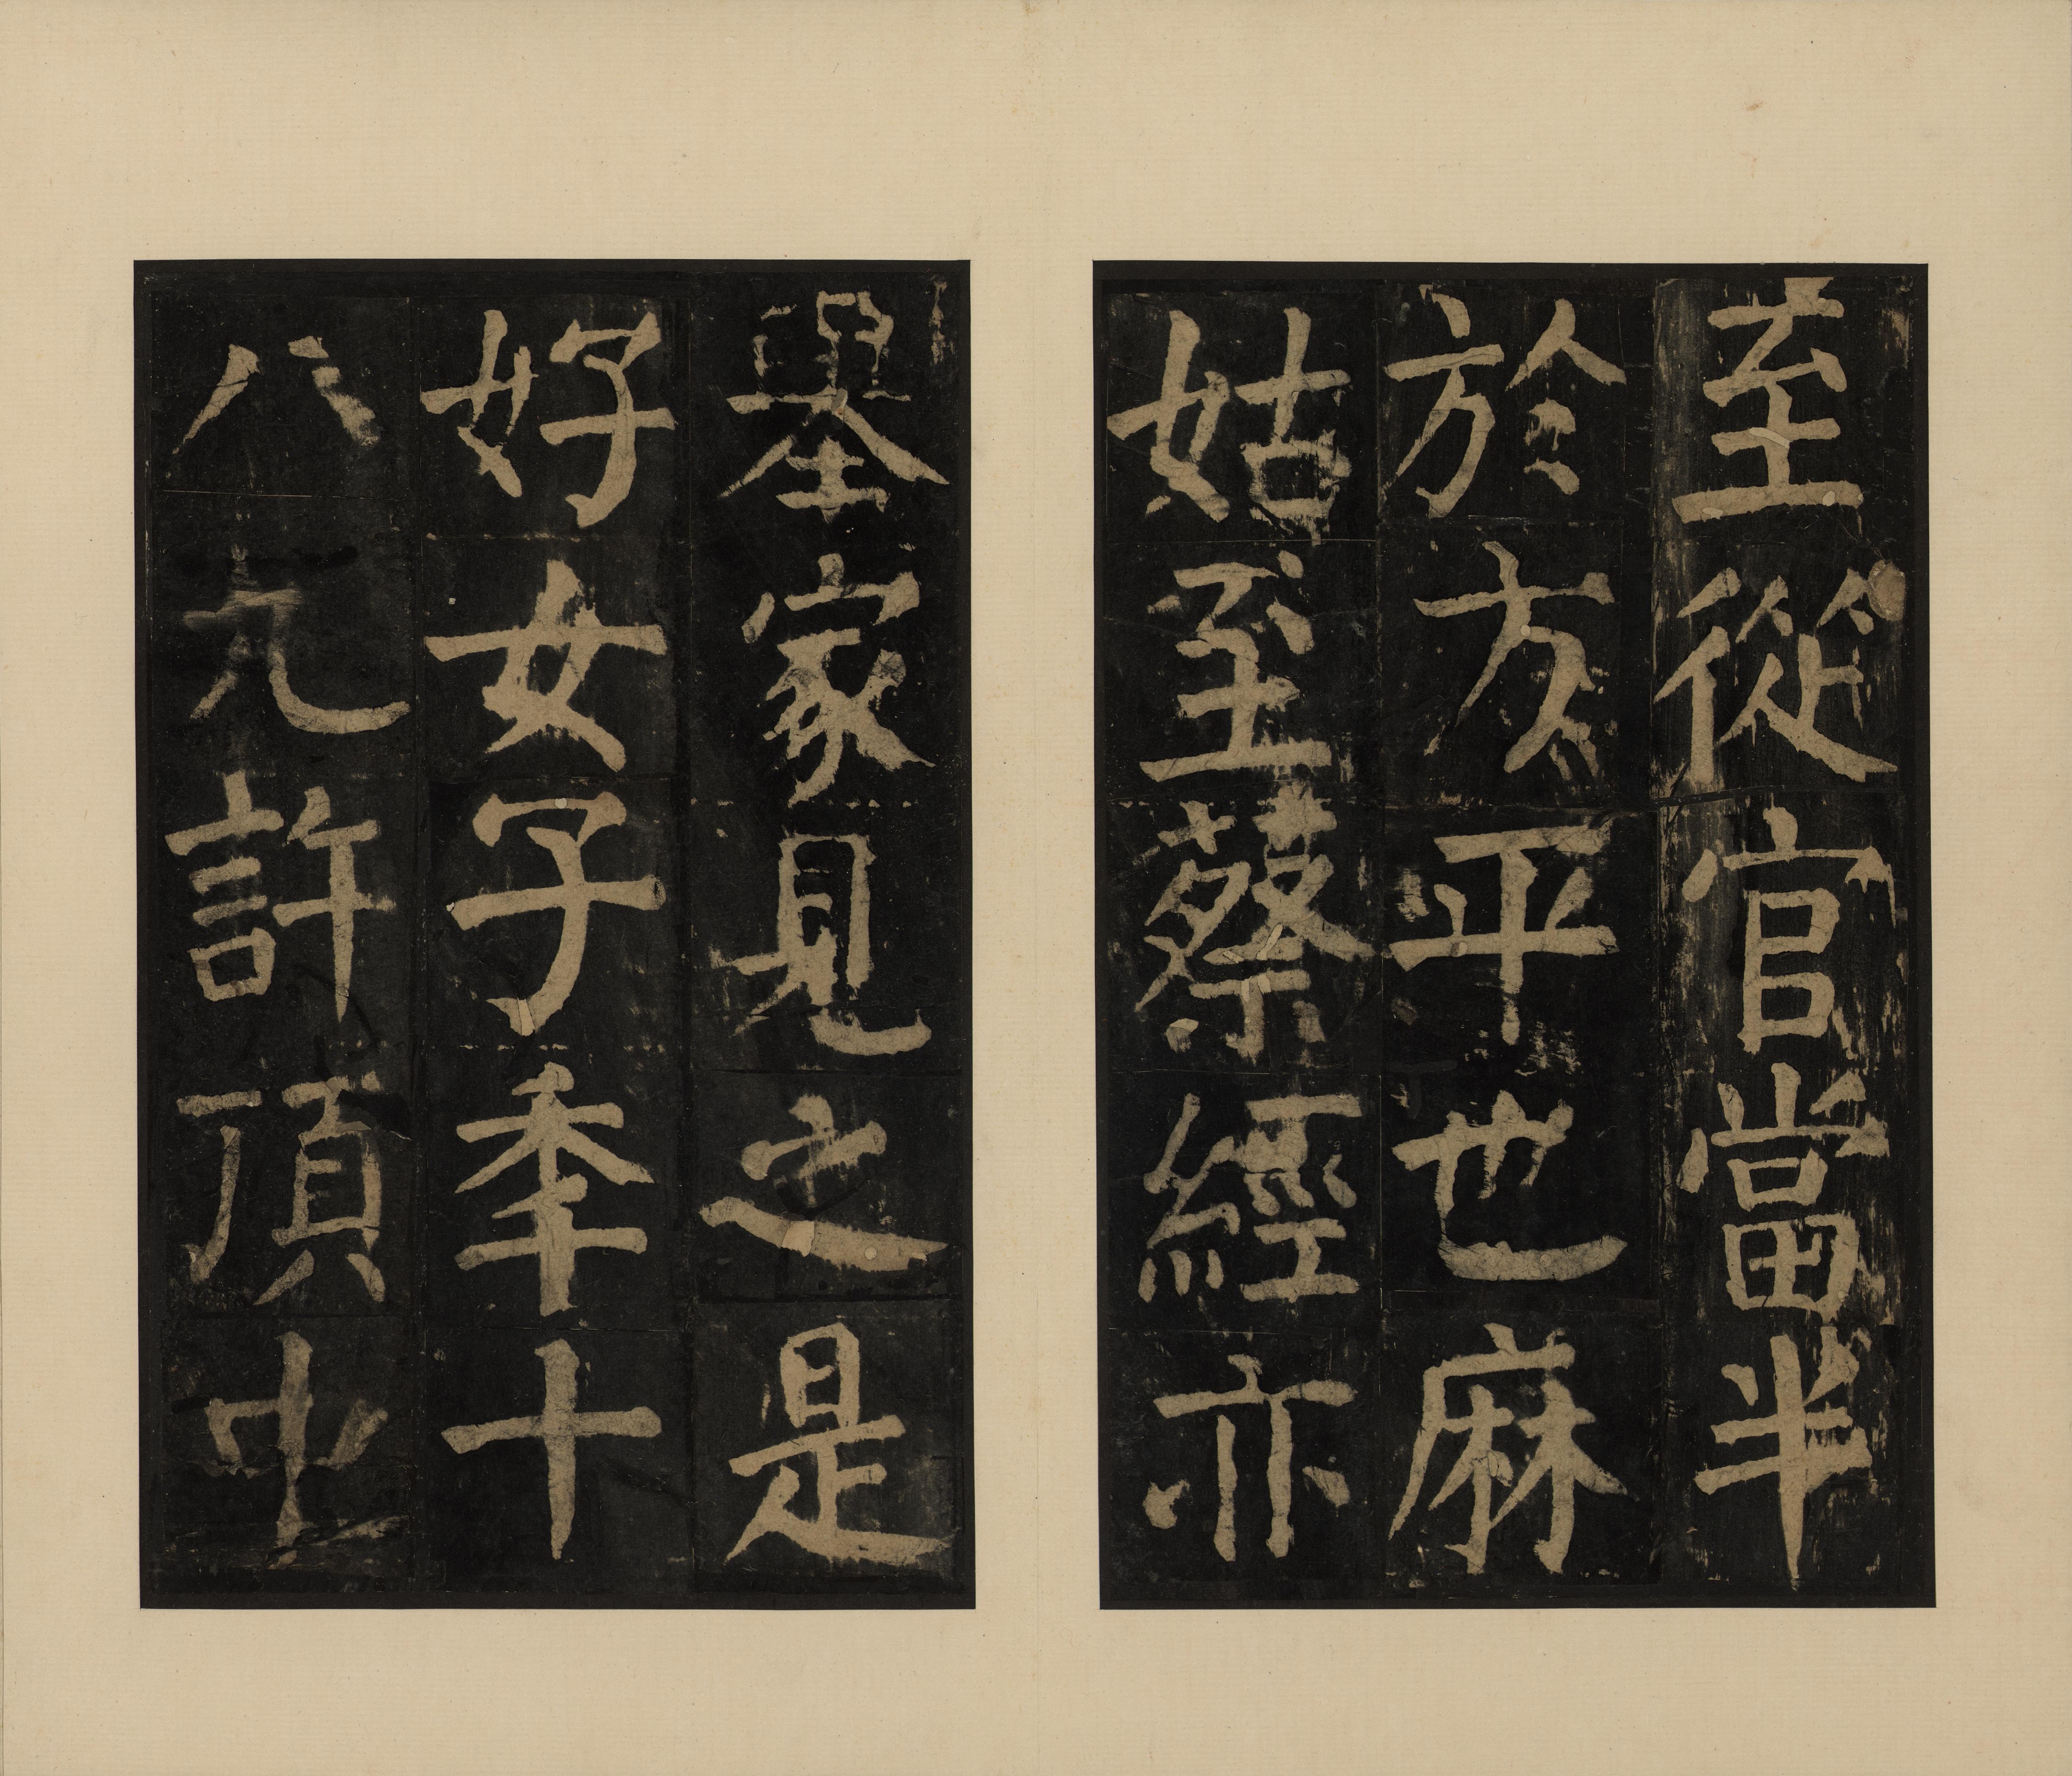 至從官當半
於方平也麻
姑至蔡經亦
舉家見之是
好女子秊十
八九許頂中